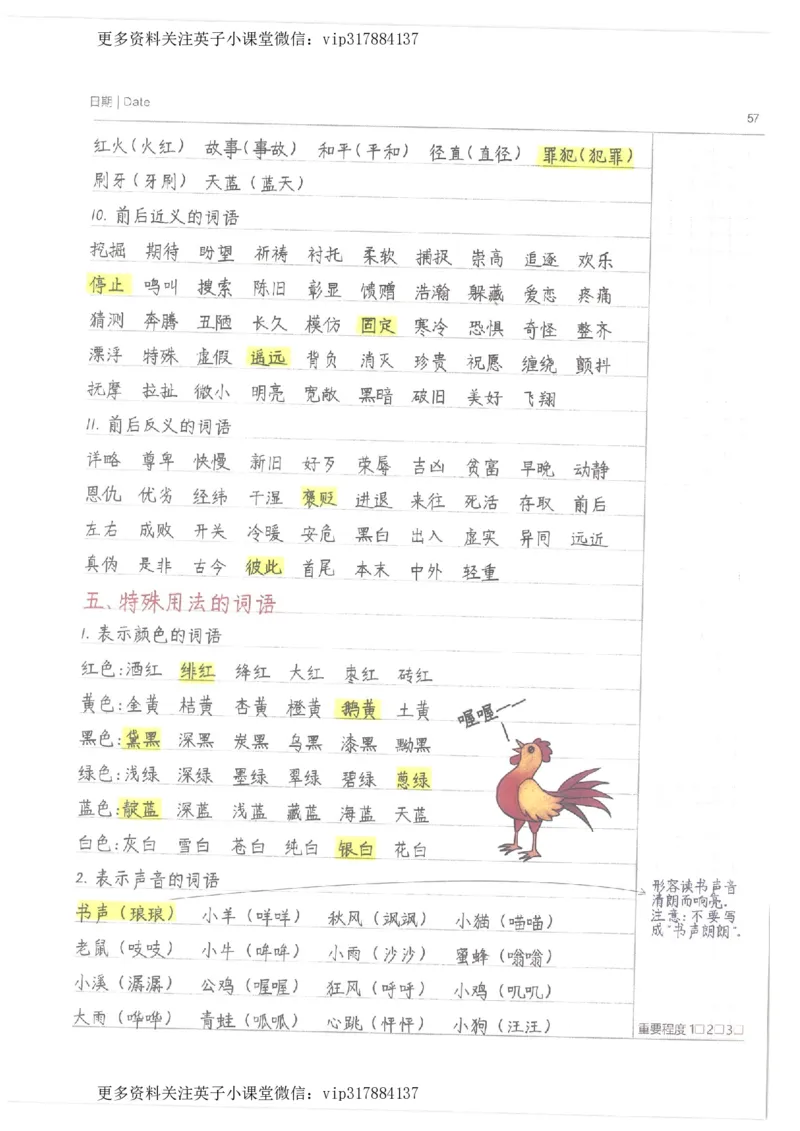 更多资料关注英子小课堂微信：vip317884137
日期 | Date
57
红火（火红） 故事（事故） 和平（平和） 径直（直径） 罪犯（犯罪）
刷牙（牙刷） 天蓝（蓝天）
10. 前后近义的词语
挖掘 期待 盼望 祈祷 衬托 柔软 捕捉 崇高 追逐 欢乐
停止 鸣叫 搜索 陈旧 彰显 馈赠 浩瀚 躲藏 爱恋 疼痛
猜测 奔腾 丑陋 长久 模仿 固定 寒冷 恐惧 奇怪 整齐
漂浮 特殊 虚假 遥远 背负 消灭 珍贵 祝愿 缠绕 颤抖
抚摩 拉扯 微小 明亮 宽敞 黑暗 破旧 美好 飞翔
11. 前后反义的词语
详略 尊卑 快慢 新旧 好歹 荣辱 吉凶 贫富 早晚 动静
恩仇 优劣 经纬 干湿 褒贬 进退 来往 死活 存取 前后
左右 成败 开关 冷暖 安危 黑白 出入 虚实 异同 远近
真伪 是非 古今 彼此 首尾 本末 中外 轻重
五、特殊用法的词语
1. 表示颜色的词语
红色：酒红 绯红 绛红 大红 枣红 砖红
黄色：金黄 桔黄 杏黄 橙黄 鹅黄 土黄
喔喔——
黑色：黛黑 深黑 炭黑 乌黑 漆黑 黝黑
绿色：浅绿 深绿 墨绿 翠绿 碧绿 葱绿
蓝色：靛蓝 深蓝 浅蓝 藏蓝 海蓝 天蓝
白色：灰白 雪白 苍白 纯白 银白 花白
2. 表示声音的词语
书声（琅琅） 小羊（咩咩） 秋风（飒飒） 小猫（喵喵）
老鼠（吱吱） 小牛（哞哞） 小雨（沙沙） 蜜蜂（嗡嗡）
小溪（潺潺） 公鸡（喔喔） 狂风（呼呼） 小鸡（叽叽）
大雨（哗哗） 青蛙（呱呱） 心跳（怦怦） 小狗（汪汪）
形容读书声音
清朗而响亮。
注意：不要写
成“书声朗朗”。
重要程度 1□ 2□ 3□
更多资料关注英子小课堂微信：vip317884137